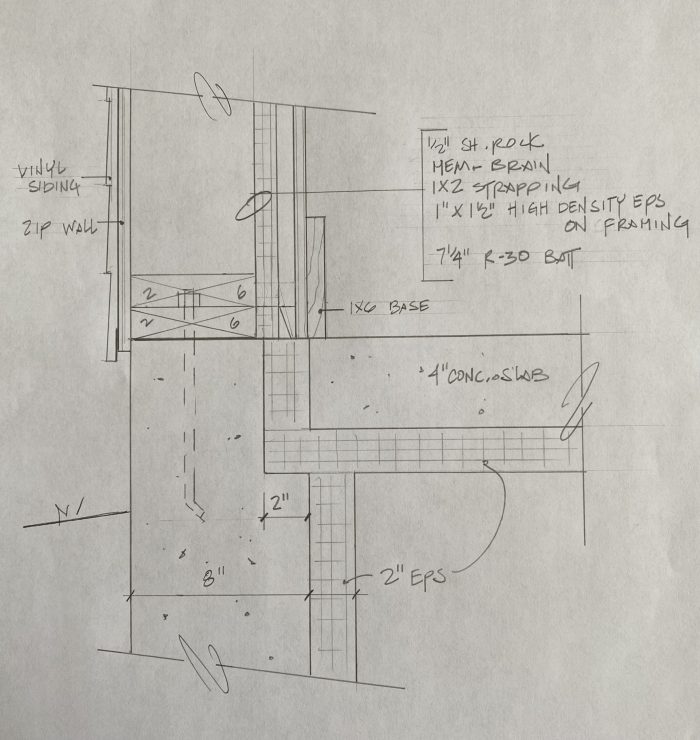 1/2" SH. ROCK
MEM-BRAIN
1X2 STRAPPING
1" X 1 1/2" HIGH DENSITY EPS
ON FRAMING
7 1/4" R-30 BATT
VINYL
SIDING
ZIP WALL
2 6
2 6
1X6 BASE
4" CONC. SLAB
2"
8"
2" EPS